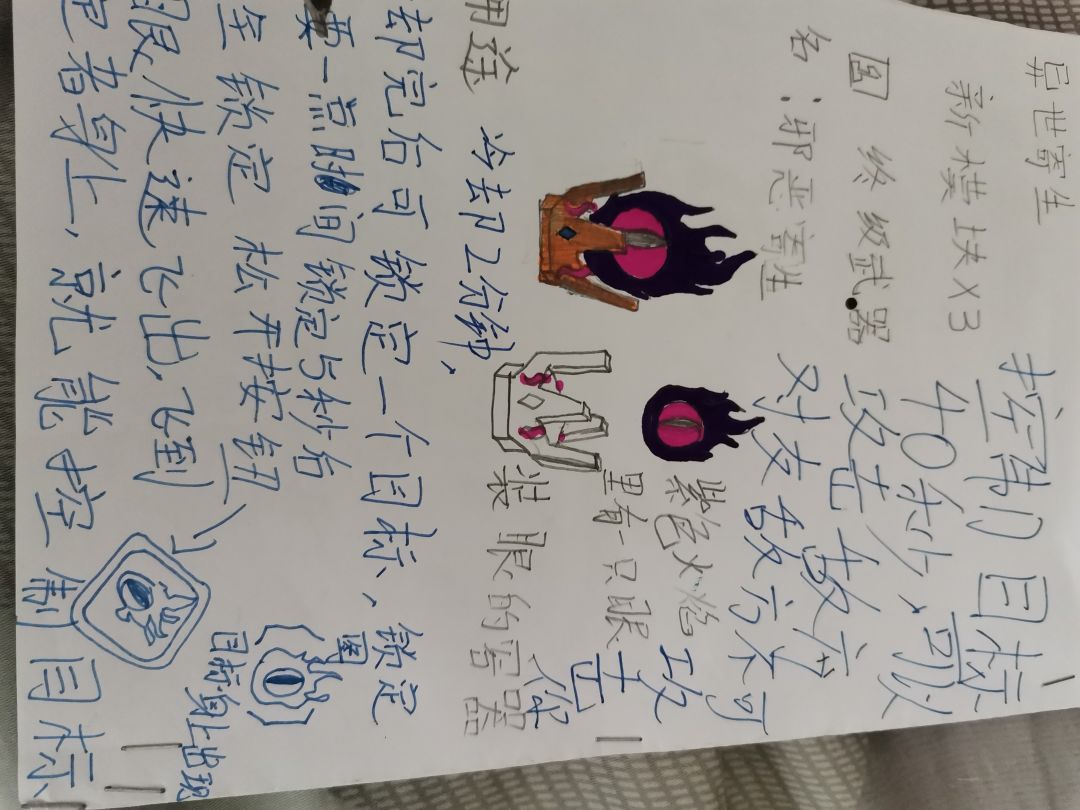 异世寄生
新模块X3
圆 终级武器
名:邪恶寄生
控制目标
40秒,可以
攻击敌方
对友敌方不可
攻击
紫色火焰
里有一只眼
装眼的容器
用途 冷却2分钟,
却完后可锁定一个目标、锁定
要一点时间锁定5秒后
至锁定 松开按钮
很快速飞出,飞到
定者身上,就能控制目标
图
目标身上出现